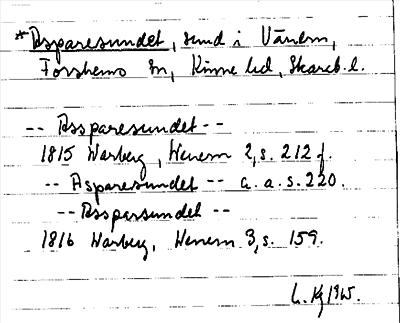 *Asparesundet, sund i Vänern,
Forshems sn, Kinne hd, Skarab. l.
-- Assparesundet --
1815 Warberg, Wenern 2, s. 212 f.
-- Asparesundet -- a. a. s. 220.
-- Asspersundet --
1816 Warberg, Wenern 3, s. 159.